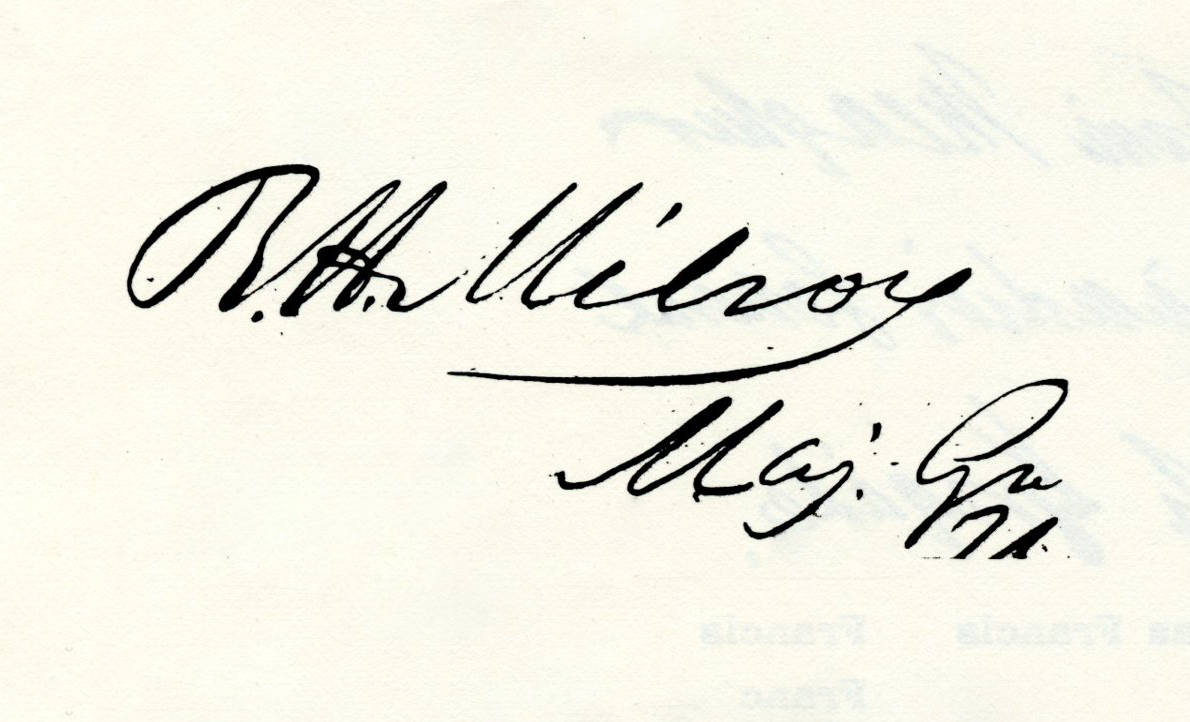 R. H. Milroy
Maj. Gen